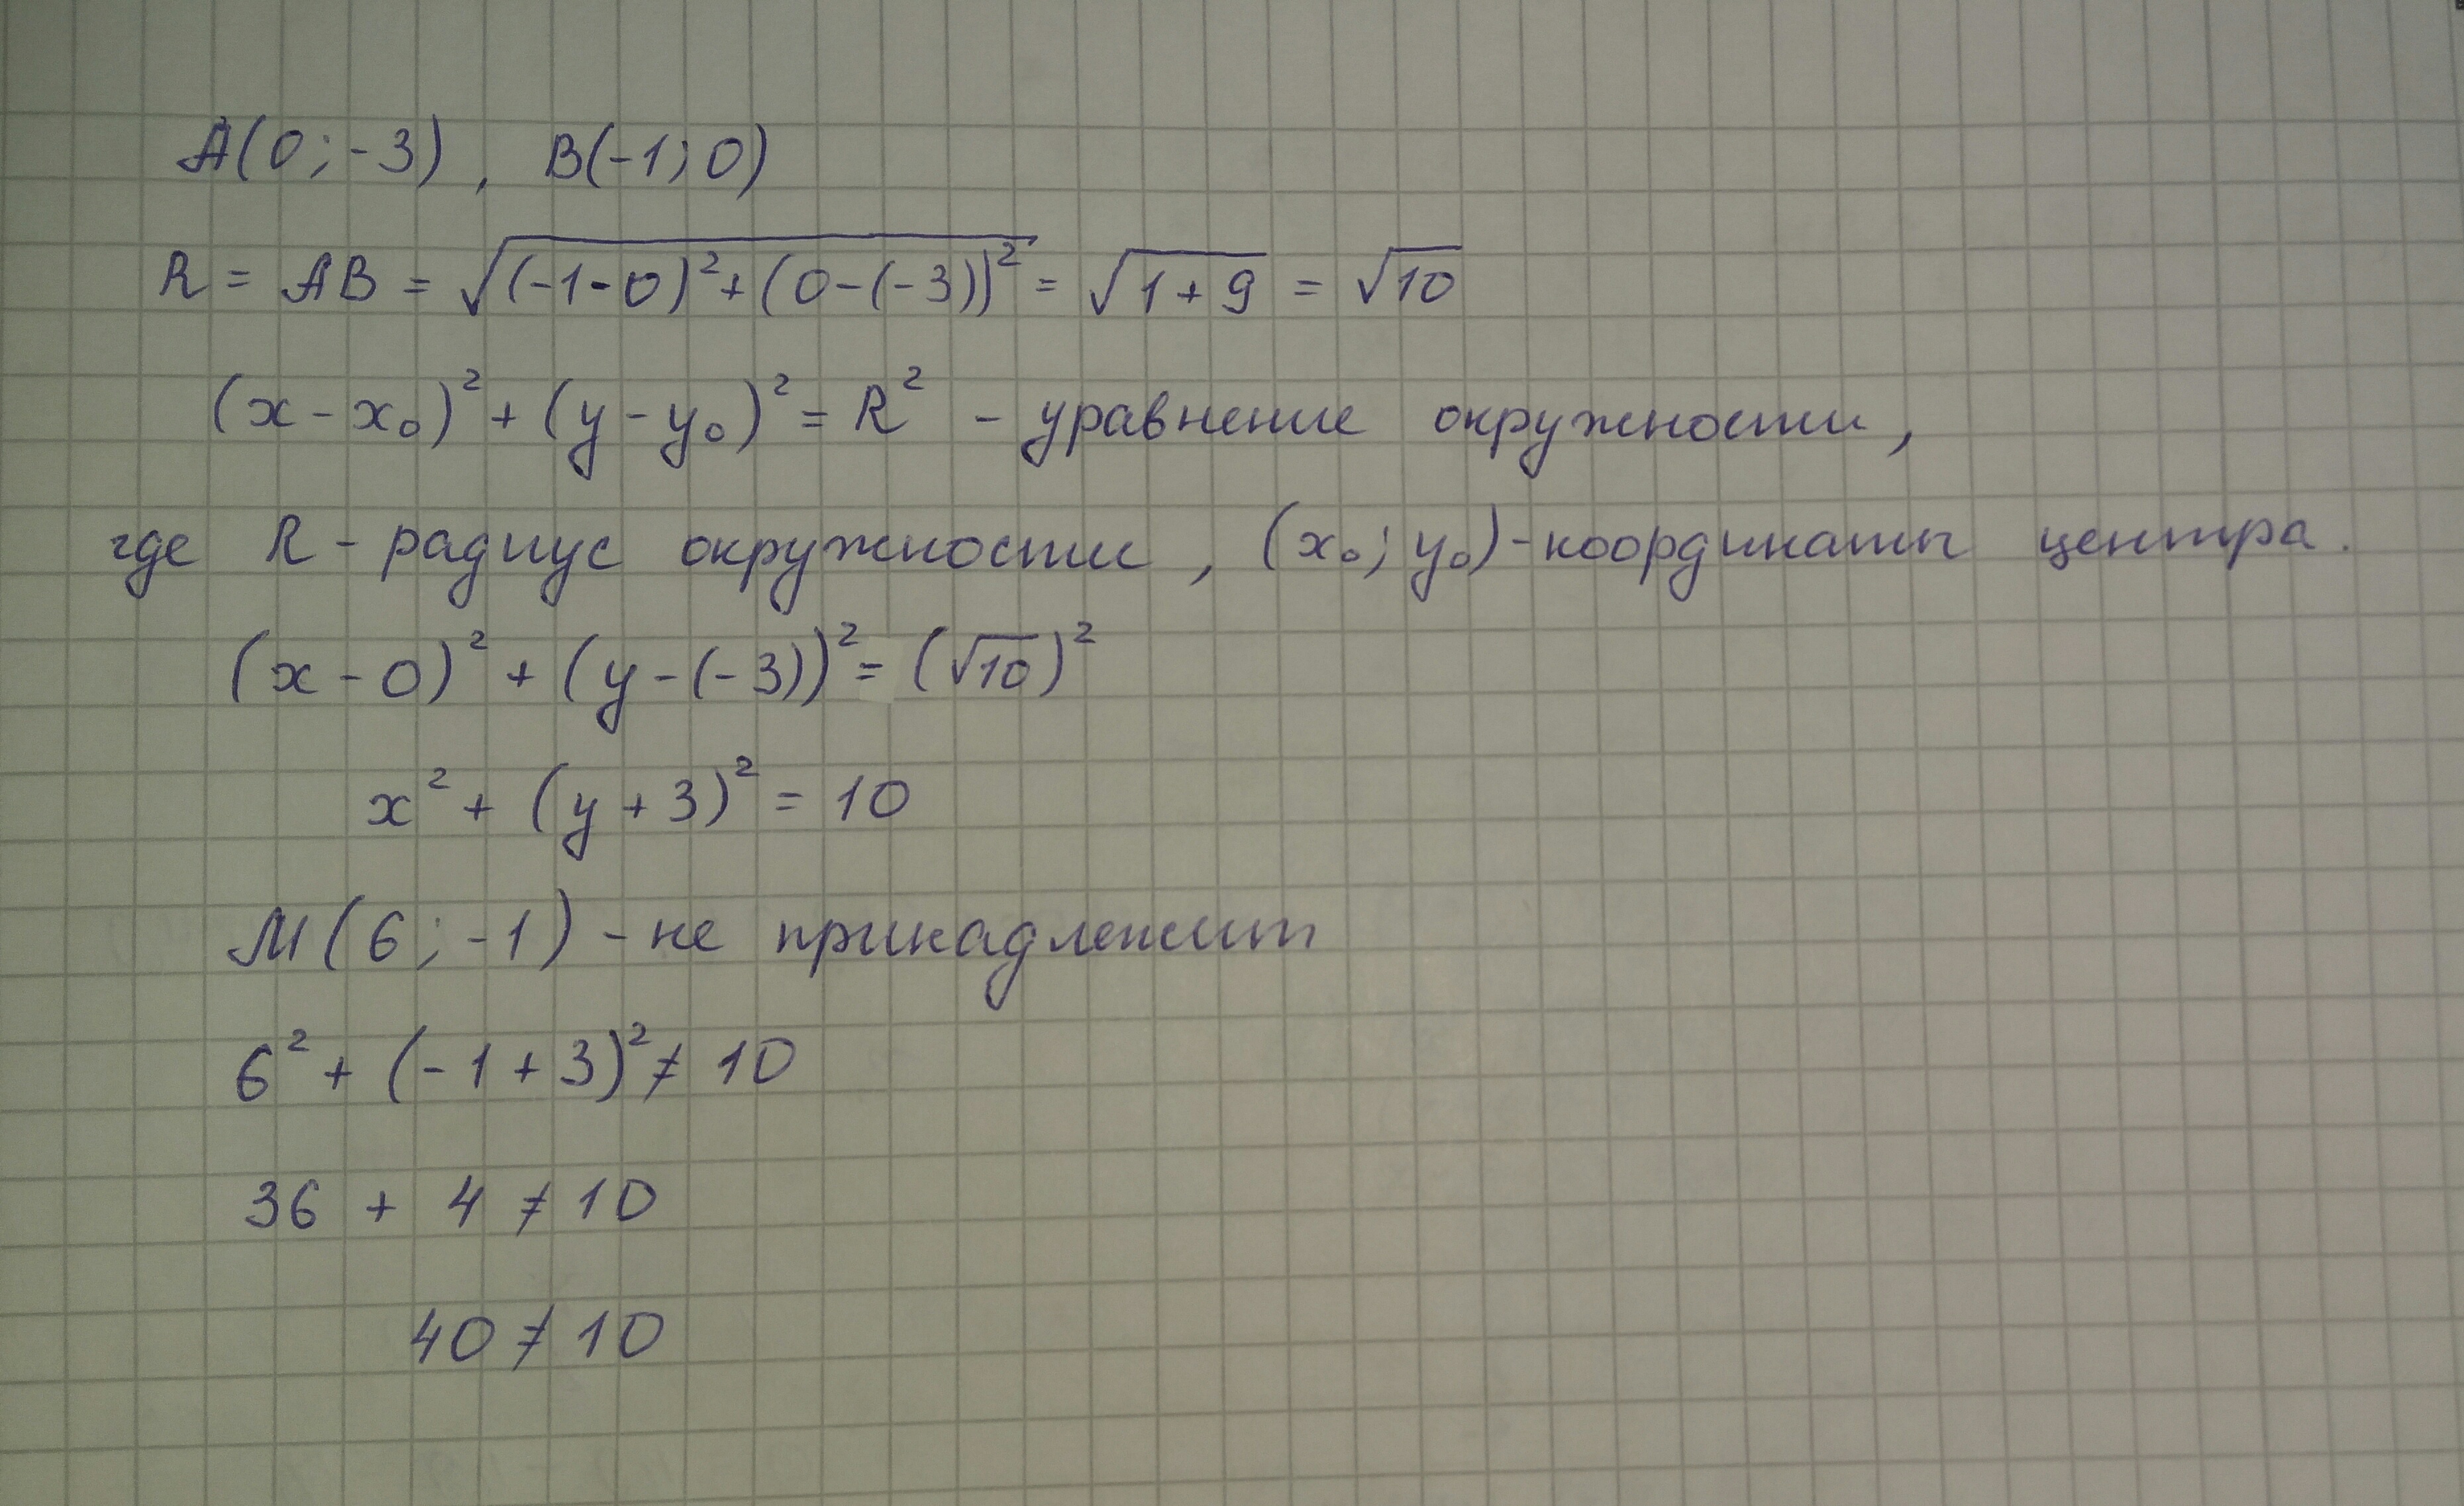 A(0;-3), B(-1;0)
R = AB = √((-1-0)² + (0-(-3))²) = √(1+9) = √10
(x-x₀)² + (y-y₀)² = R² - уравнение окружности,
где R - радиус окружности, (x₀; y₀) - координаты центра.
(x-0)² + (y-(-3))² = (√10)²
x² + (y+3)² = 10
M(6;-1) - не принадлежит
6² + (-1+3)² ≠ 10
36 + 4 ≠ 10
40 ≠ 10